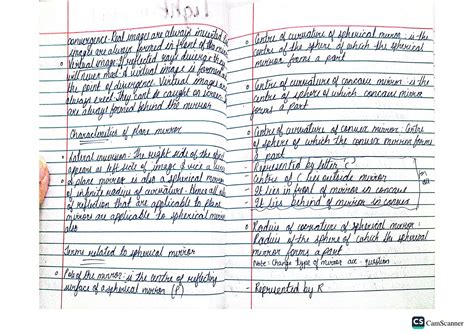 convergence. Real image are always inverted &
image are always formed in front of the mirror
Virtual image: If reflected rays diverge they
will never meet. A virtual image is formed at
the point of divergence. Virtual images are
always erect. They cant be caught on screen &
are always formed behind the mirror
Characteristics of plane mirror
Lateral inversion: The right side of the object
appears as left side of image & vice versa
A plane mirror is also a spherical mirror
of infinite radius of curvature. Hence all
of reflection that are applicable to plane
mirrors are applicable to spherical mirror
also.
Terms related to spherical mirror
Pole of the mirror: is the centre of reflecting
surface of a spherical mirror (P)
Centre of curvature of spherical mirror: is the
centre of the sphere of which the spherical
mirror forms a part
Centre of curvature of concave mirror: is the
centre of sphere of which concave mirror
forms a part
Centre of curvature of convex mirror: Centre
of sphere of which the convex mirror forms
a part
Represented by letter 'C'
Centre of C lies outside mirror
It lies in front of mirror in concave
It lies behind of mirror in convex
for all
Radius of curvature of spherical mirror
Radius of the sphere of which the spherical
mirror forms a part
Note: Change type of mirror acc. question
- Represented by R
CS CamScanner